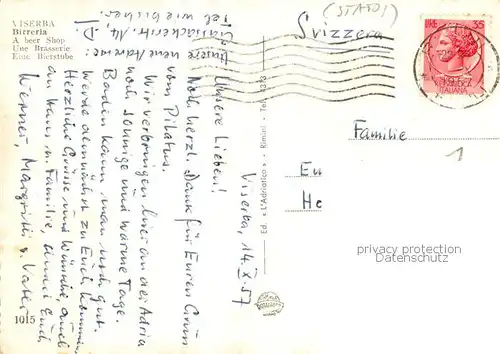 VISERBA
Birreria
A beer Shop
Une Brasserie
Eine Bierstube
1015
Ed. « L'Adriatico » - Rimini - Tel. 1373
(STADI)
Svizzera
ITALIANA
Familie
1
Eu
He
privacy protection
Datenschutz
Viserba, 14.X.57
Unsere Lieben!
Noch herzl. Dank für Euren Gruss
vom Pilatus.
Wir verbringen hier an der Adria
noch sonnige und warme Tage.
Baden kann man noch gut.
Werde demnächst zu Euch kommen.
Herzliche Grüsse und Wünsche, auch
an Hans u. Familie, an Euch
Werner, Margrith u. Vater
Unsere neue Adresse:
14, D.
Tel. wie bisher.